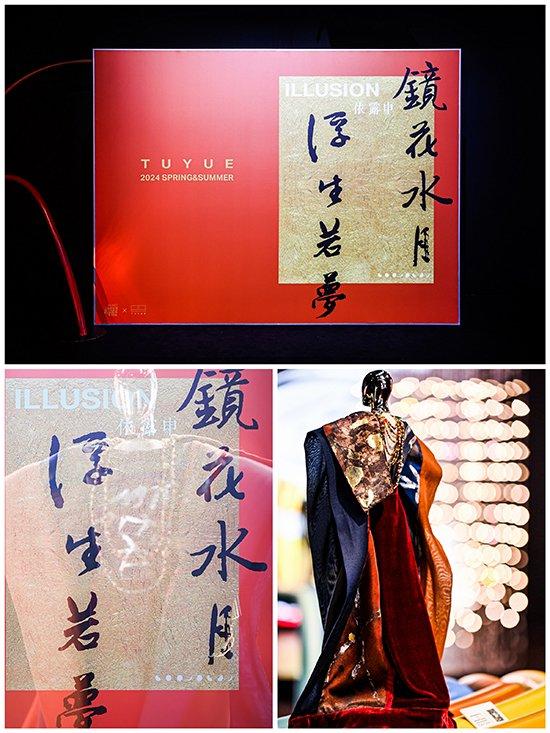 TUYUE
2024 SPRING&SUMMER
ILLUSION
依露申
鏡花水月
浮生若夢
ILLUSION
依露申
鏡花水月
浮生若夢